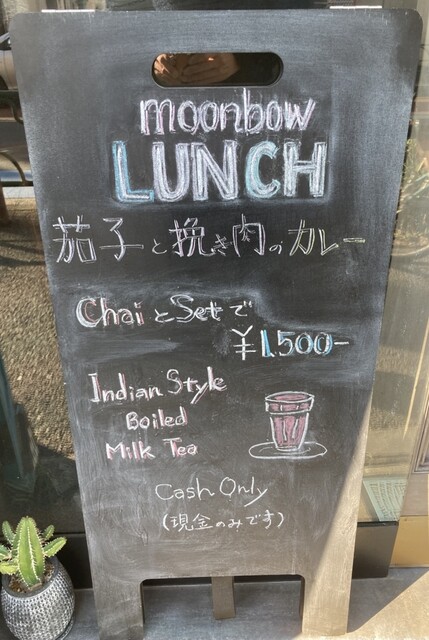 moonbow
LUNCH
茄子と挽き肉のカレー
ChaiとSetで
¥1.500-
Indian Style
Boiled
Milk Tea
Cash Only
(現金のみです)